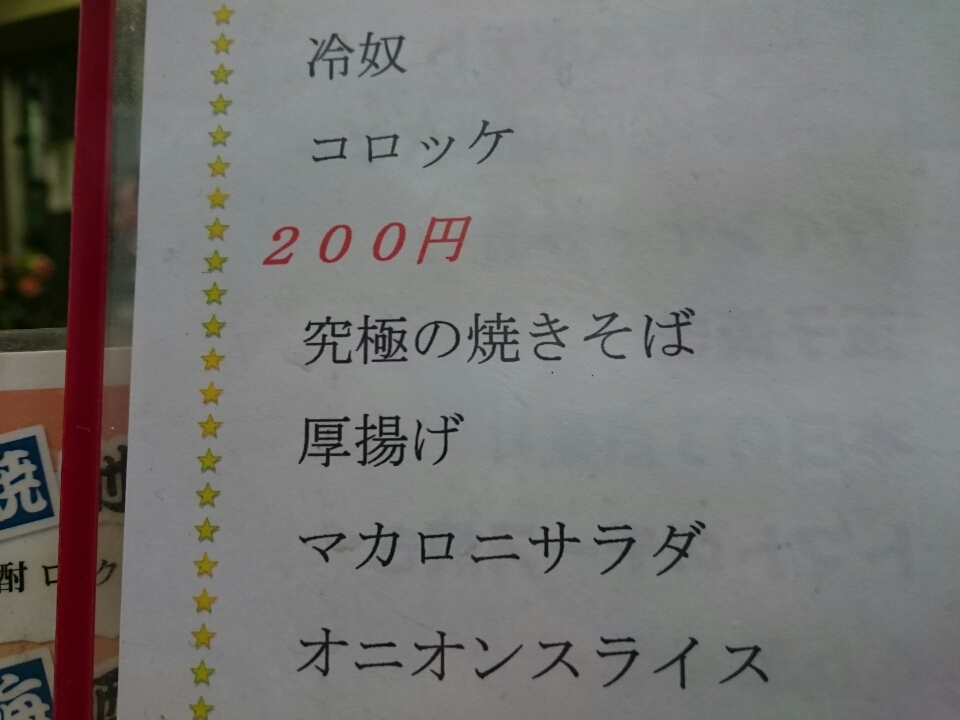 冷奴
コロッケ
２００円
究極の焼きそば
厚揚げ
マカロニサラダ
オニオンスライス
焼
酎 ロック